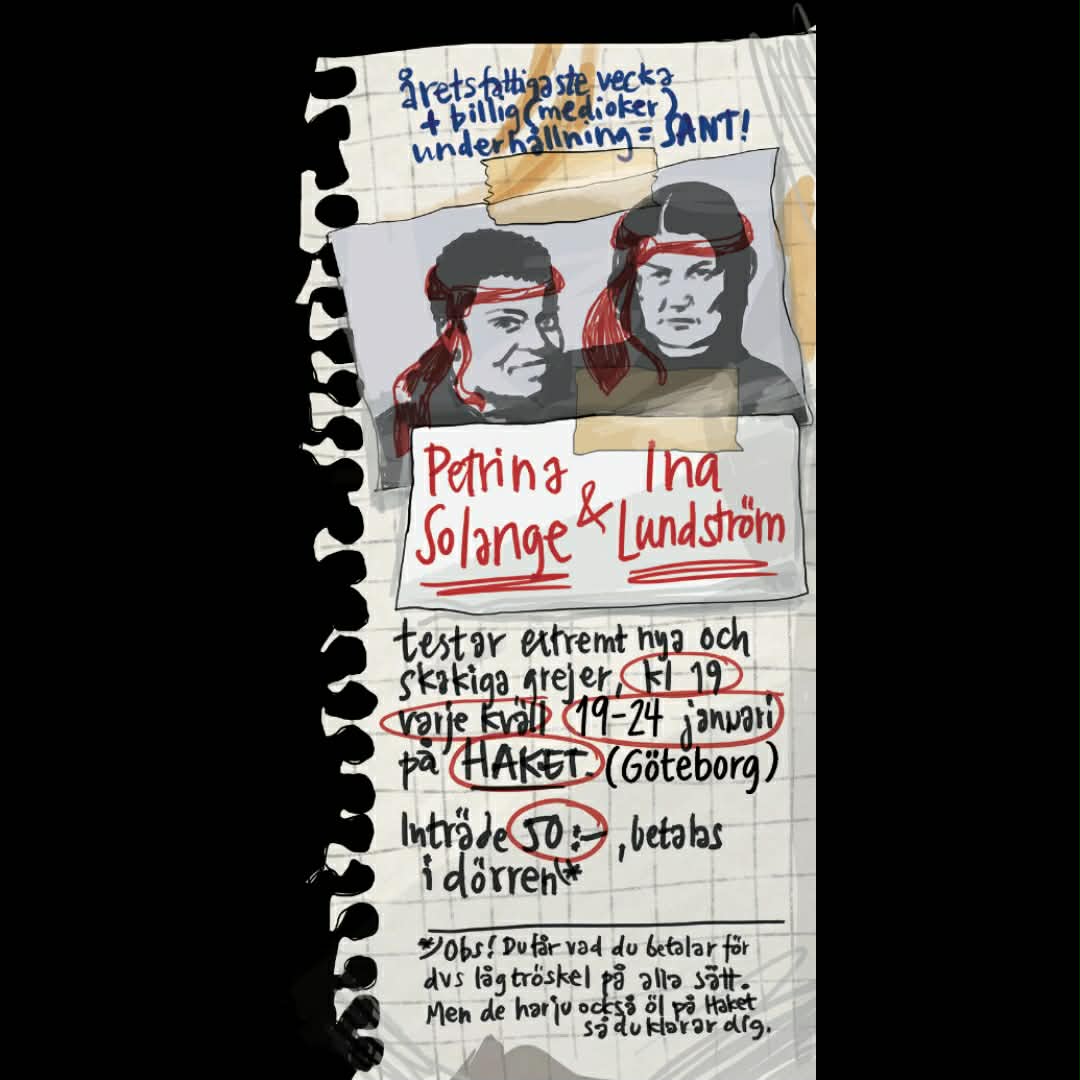 årets fattigaste vecka
+ billig (medioker)
underhållning = SANT!
Petrina
Solange
&
Ina
Lundström
testar extremt nya och
skakiga grejer, kl 19
varje kväll 19-24 januari
på HAKET. (Göteborg)
Inträde 50:-, betalas
i dörren(*
*) Obs! Du får vad du betalar för
dvs låg tröskel på alla sätt.
Men de har ju också öl på Haket
så du klarar dig.